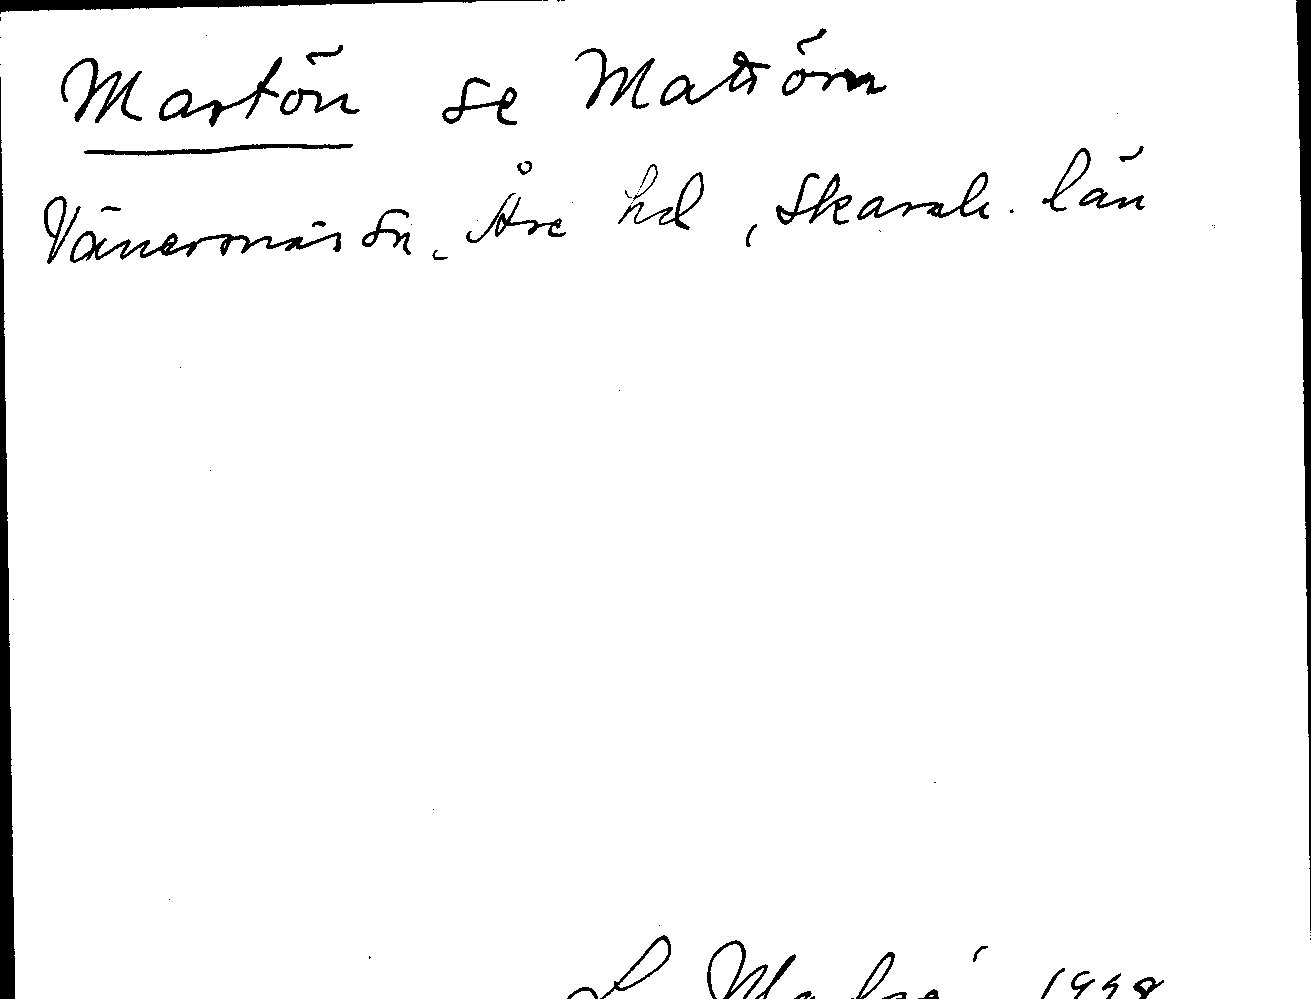 Martön se Mattörn
Vänersnäs sn, Åse hd, Skarab. län
1998